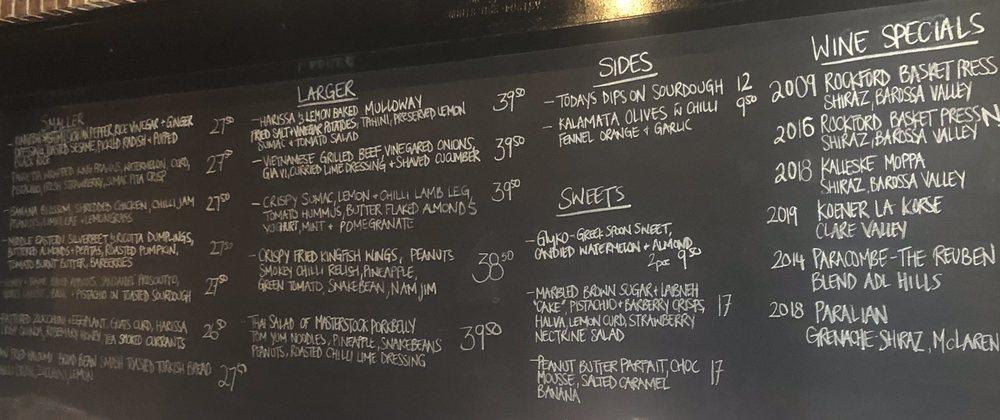 SMALLER
PEPPER, RICE VINEGAR + GINGER
TOASTED SESAME, PICKLED RADISH + PUFFED
27⁵⁰
PRAWNS, WATERMELON, CURD,
PISTACHIO, FRESH STRAWBERRY, SUMAC PITA CRISP
27⁵⁰
BANANA BLOSSOM, SHREDDED CHICKEN, CHILLI JAM
+ LEMONGRASS
27⁵⁰
MIDDLE EASTERN SILVERBEET + RICOTTA DUMPLINGS,
BUTTERED ALMONDS + PEPITAS, ROASTED PUMPKIN,
TOMATO BURNT BUTTER, BARBERRIES
27⁵⁰
PROSCIUTTO,
BASIL + PISTACHIO ON TOASTED SOURDOUGH
27⁵⁰
ZUCCHINI + EGGPLANT, GOATS CURD, HARISSA
CRISPY QUINOA, ROSEMARY HONEY TEA SOAKED CURRANTS
26⁵⁰
FRIED HALOUMI BROAD BEAN SMASH TOASTED TURKISH BREAD
LEMON
27⁵⁰
LARGER
- HARISSA + LEMON BAKED MULLOWAY
FRIED SALT + VINEGAR POTATOES, TAHINI, PRESERVED LEMON
SUMAC + TOMATO SALAD
39⁵⁰
- VIETNAMESE GRILLED BEEF, VINEGARED ONIONS,
GIA VI, CURRIED LIME DRESSING + SHAVED CUCUMBER
39⁵⁰
- CRISPY SUMAC, LEMON + CHILLI LAMB LEG,
TOMATO HUMMUS, BUTTER FLAKED ALMONDS
YOGHURT, MINT + POMEGRANATE
39⁵⁰
- CRISPY FRIED KINGFISH WINGS, PEANUTS
SMOKEY CHILLI RELISH, PINEAPPLE,
GREEN TOMATO, SNAKEBEAN, NAM JIM
38⁵⁰
THAI SALAD OF MASTERSTOCK PORKBELLY
TOM YUM NOODLES, PINEAPPLE, SNAKEBEANS
PEANUTS, ROASTED CHILLI LIME DRESSING
39⁵⁰
SIDES
- TODAYS DIPS ON SOURDOUGH 12
- KALAMATA OLIVES W CHILLI 9⁵⁰
FENNEL ORANGE + GARLIC
SWEETS
- GLYKO - GREEK SPOON SWEET,
CANDIED WATERMELON + ALMOND
2pce 9⁵⁰
- MARBLED BROWN SUGAR + LABNEH
"CAKE", PISTACHIO + BARBERRY CRISPS, 17
HALVA LEMON CURD, STRAWBERRY
NECTRINE SALAD
- PEANUT BUTTER PARFAIT, CHOC 17
MOUSSE, SALTED CARAMEL
BANANA
WINE SPECIALS
2009 ROCKFORD BASKET PRESS
SHIRAZ, BAROSSA VALLEY
2016 ROCKFORD BASKET PRESS
SHIRAZ, BAROSSA VALLEY
2018 KALLESKE MOPPA
SHIRAZ, BAROSSA VALLEY
2019 KOENER LA KORSE
CLARE VALLEY
2014 PARACOMBE - THE REUBEN
BLEND ADL HILLS
2018 PARALIAN
GRENACHE-SHIRAZ, McLAREN